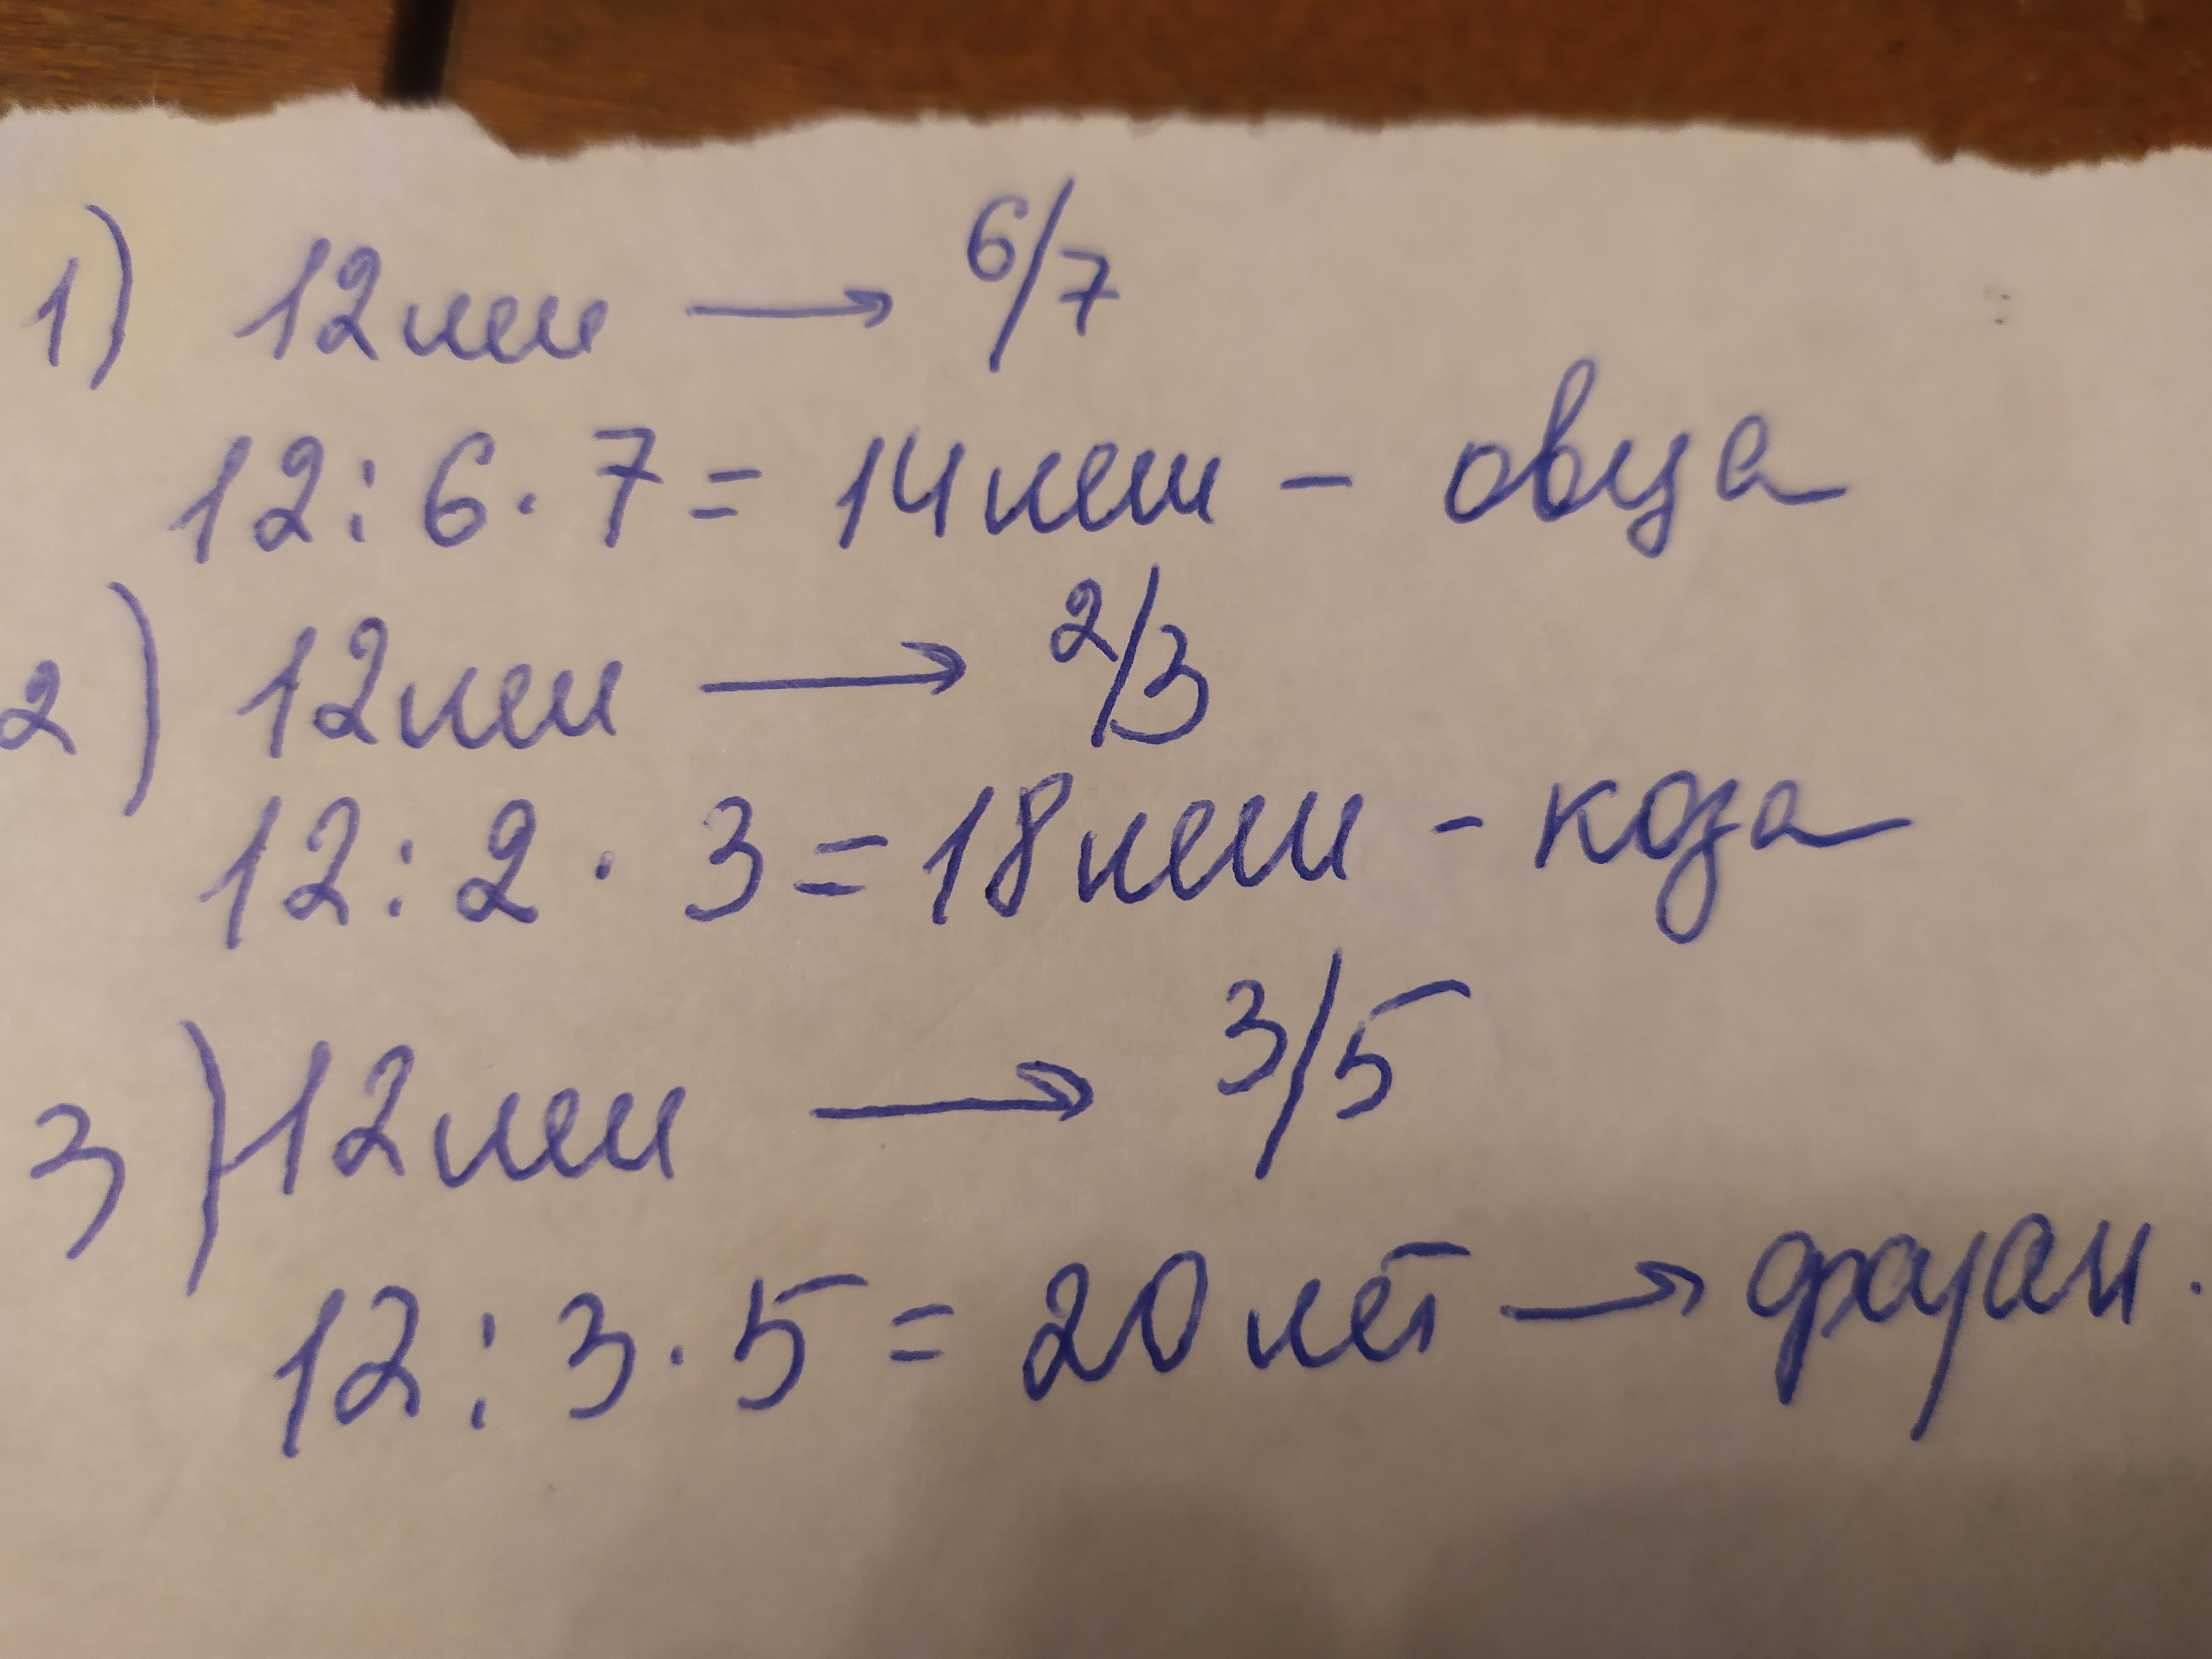 1) 12 лет → 6/7
12 : 6 · 7 = 14 лет - овца
2) 12 лет → 2/3
12 : 2 · 3 = 18 лет - коза
3) 12 лет → 3/5
12 : 3 · 5 = 20 лет → фазан.